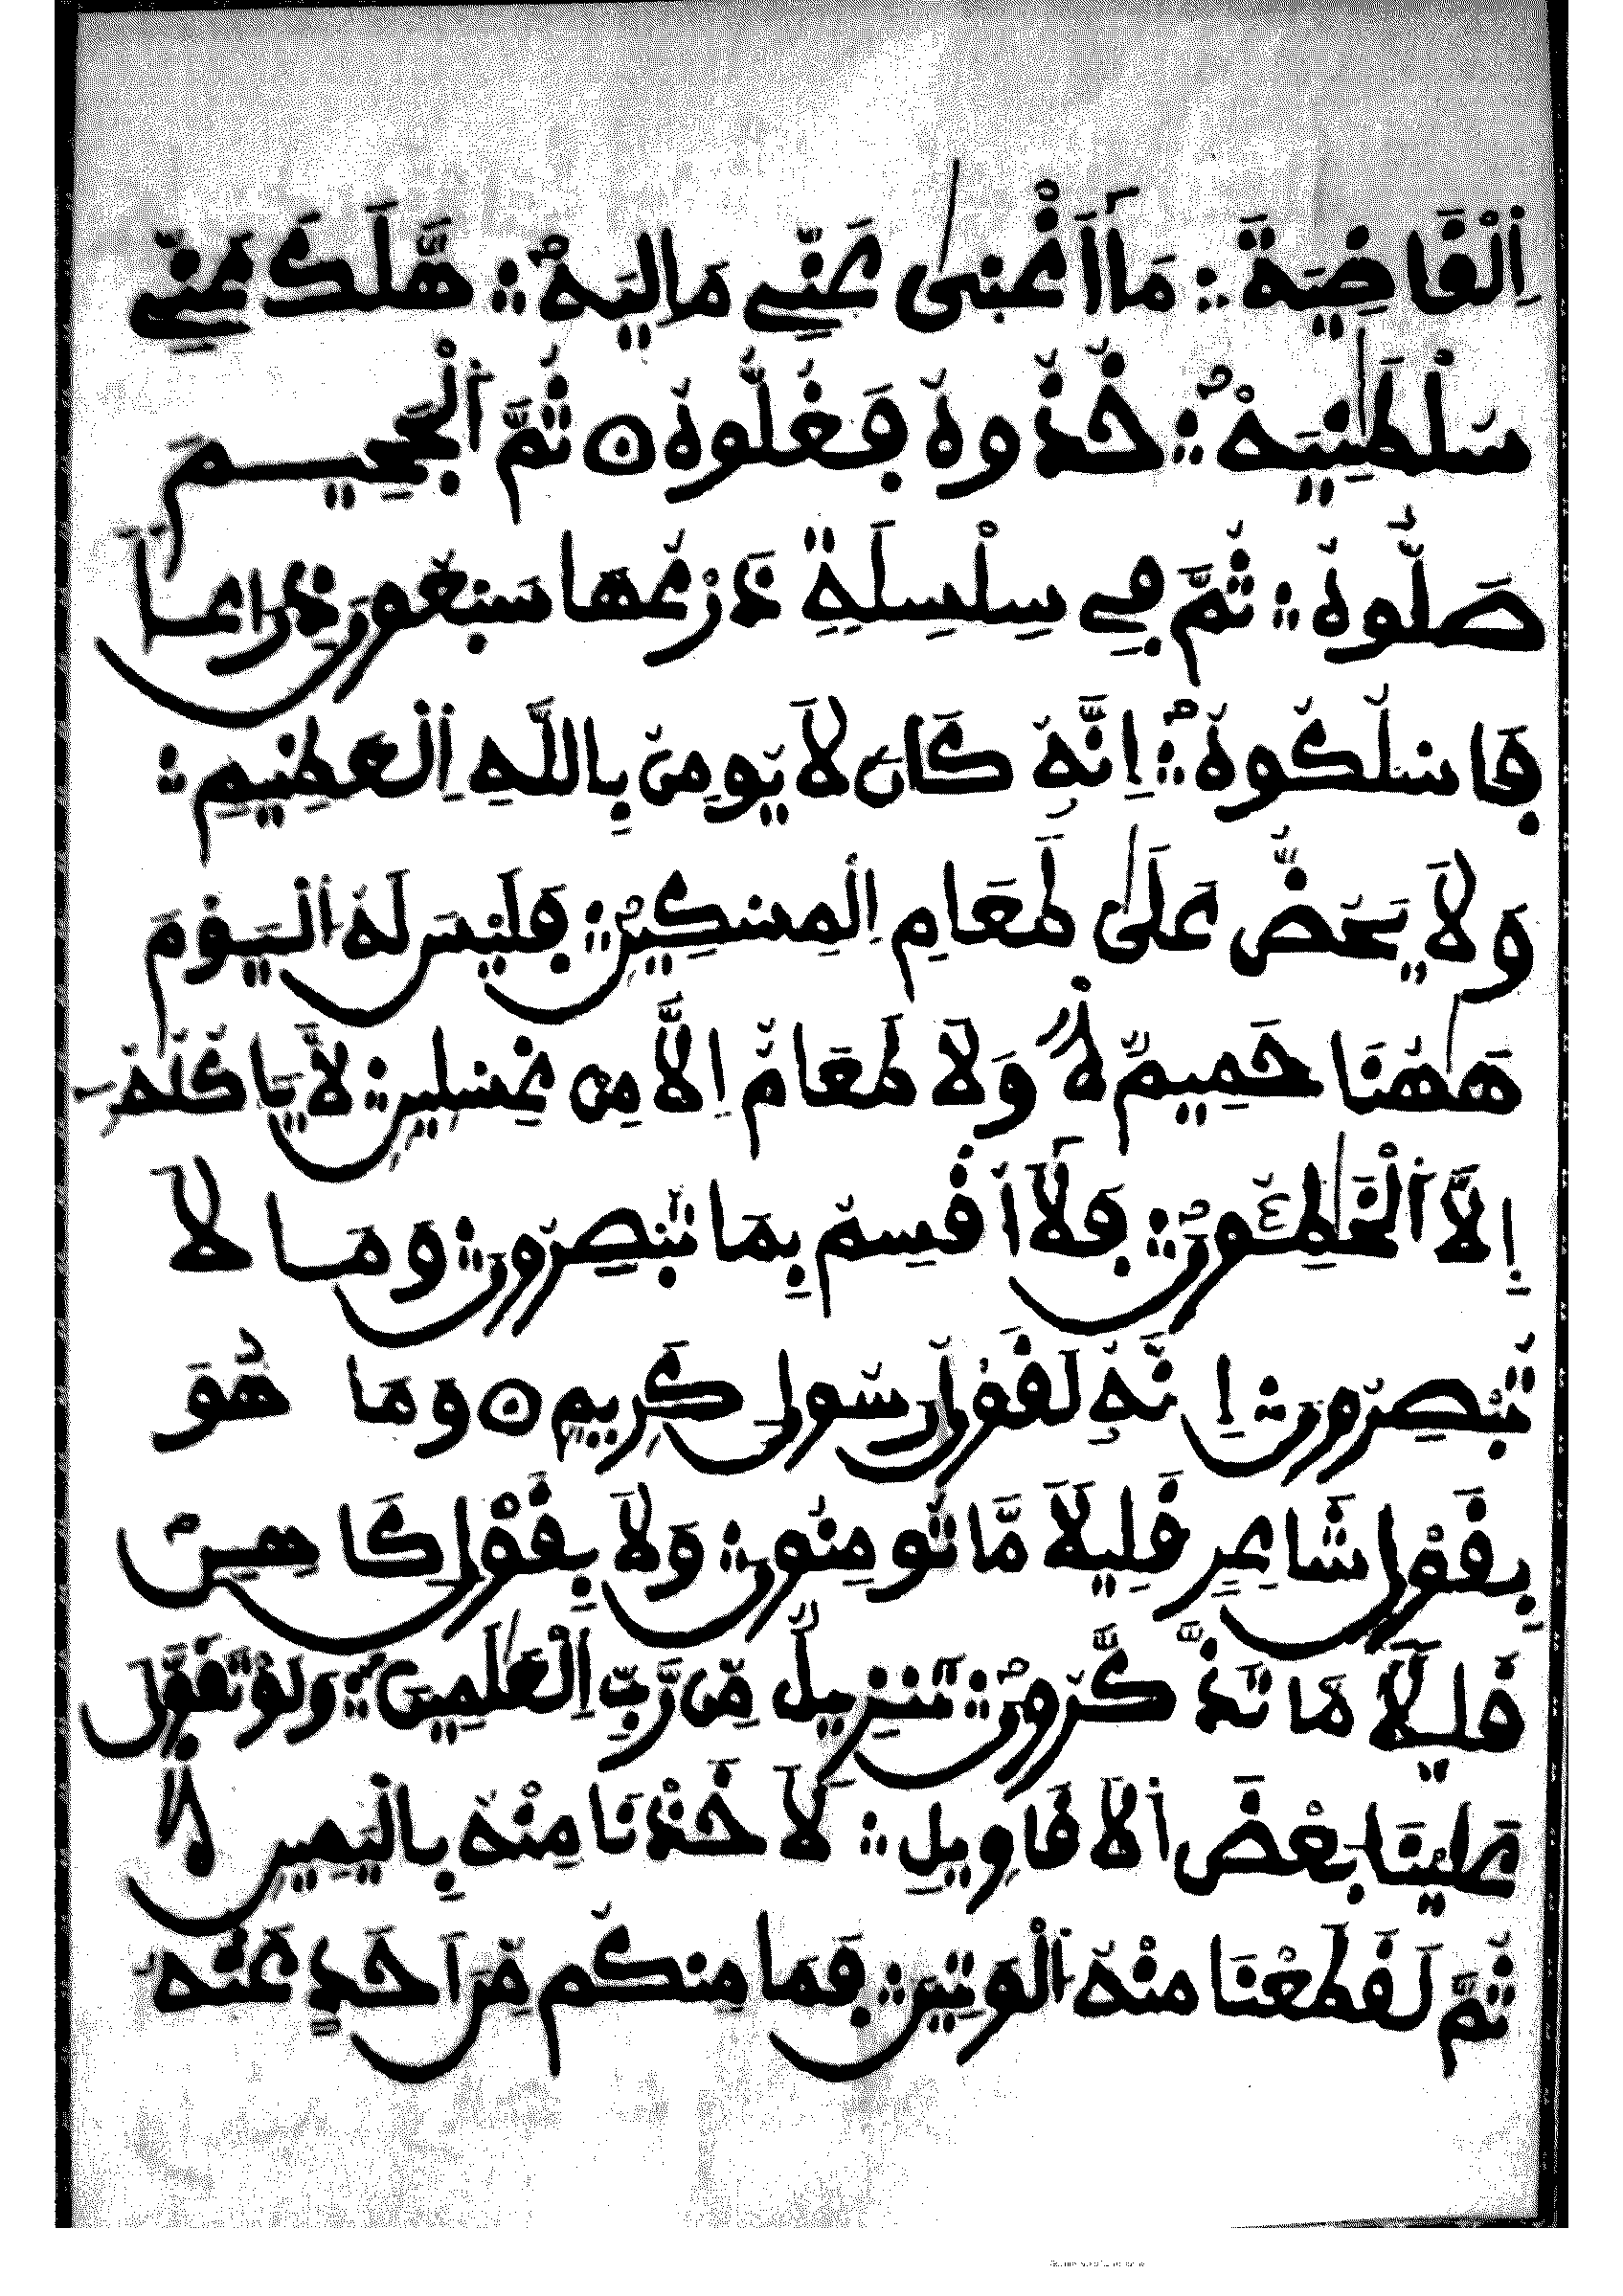 اِ۬لْقَاضِيَةَ ۝ مَا أَغْن۪ىٰ عَنِّے مَالِيَهْ ۝ هَّلَكَ عَنِّے
سُلْطَٰنِيَهْ ۝ خُذُوهُ فَغُلُّوهُ ۝ ثُمَّ اَ۬لْجَحِيمَ
صَلُّوهُ ۝ ثُمَّ فِے سِلْسِلَةٖ ذَرْعُهَا سَبْعُونَ ذِرَاعاٗ
فَاسْلُكُوهُ ۝ إِنَّهُۥ كَانَ لَا يُومِنُ بِاللَّهِ اِ۬لْعَظِيمِ ۝
وَلَا يَحُضُّ عَلَىٰ طَعَامِ اِ۬لْمِسْكِينِ ۝ فَلَيْسَ لَهُ اُ۬لْيَوْمَ
هَٰهُنَا حَمِيمٞ ۝ وَلَا طَعَامٌ اِلَّا مِنْ غِسْلِينٖ ۝ لَّا يَاكُلُهُۥ
إِلَّا اَ۬لْخَٰطِـُٔونَ ۝ فَلَا أُقْسِمُ بِمَا تُبْصِرُونَ ۝ وَمَا لَا
تُبْصِرُونَ ۝ إِنَّهُۥ لَقَوْلُ رَسُولٖ كَرِيمٖ ۝ وَمَا هُوَ
بِقَوْلِ شَاعِرٖ قَلِيلاٗ مَّا تُومِنُونَ ۝ وَلَا بِقَوْلِ كَاهِنٖ
قَلِيلاٗ مَّا تَذَّكَّرُونَ ۝ تَنزِيلٞ مِّن رَّبِّ اِ۬لْعَٰلَمِينَ ۝ وَلَوْ تَقَوَّلَ
عَلَيْنَا بَعْضَ اَ۬لَاقَاوِيلِ ۝ لَأَخَذْنَا مِنْهُ بِالْيَمِينِ ۝
ثُمَّ لَقَطَعْنَا مِنْهُ اُ۬لْوَتِينَ ۝ فَمَا مِنكُم مِّنَ اَحَدٍ عَنْهُ